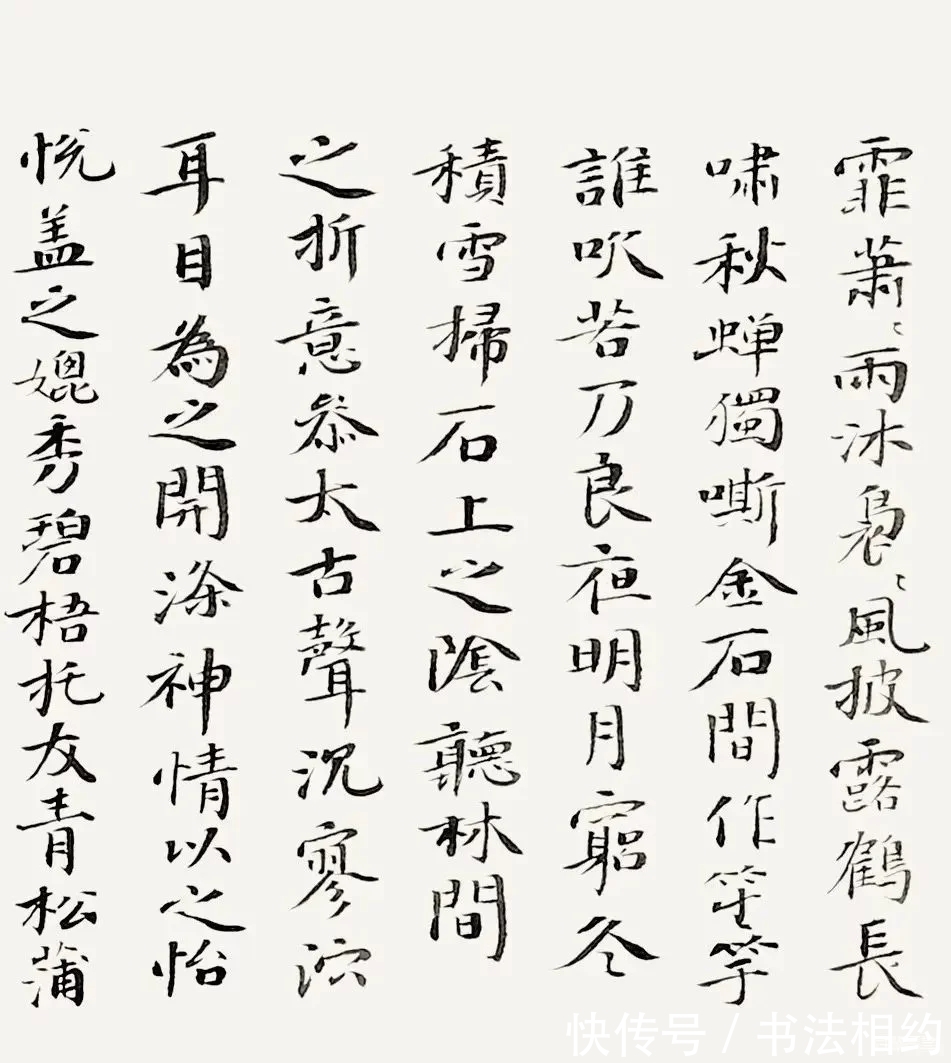 霏蕭〻雨沐裊〻風披露鶴長
嘯秋蟬獨嘶金石間作笙竽
誰吹若乃良夜明月窮冬
積雪掃石上之陰聽林間
之折意參太古聲沉寥泬
耳目為之開滌神情以之怡
悅盖之媲秀碧梧托友青松蒲
快传号/书法相约